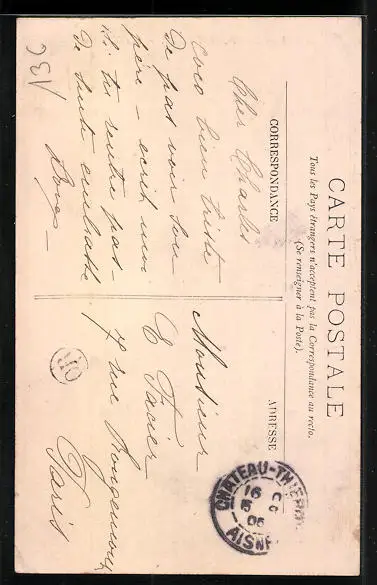 CARTE POSTALE
Tous les Pays étrangers n'acceptent pas la Correspondance au recto.
(Se renseigner à la Poste).
CORRESPONDANCE
Cher Charles
Coco bien triste
de pas voir son
père – écrit moi
si tu rentre pas
de suite
ADRESSE
Monsieur
E Favier
7 rue
Paris
CHATEAU-THIERRY
16
5
06
AISNE
13C